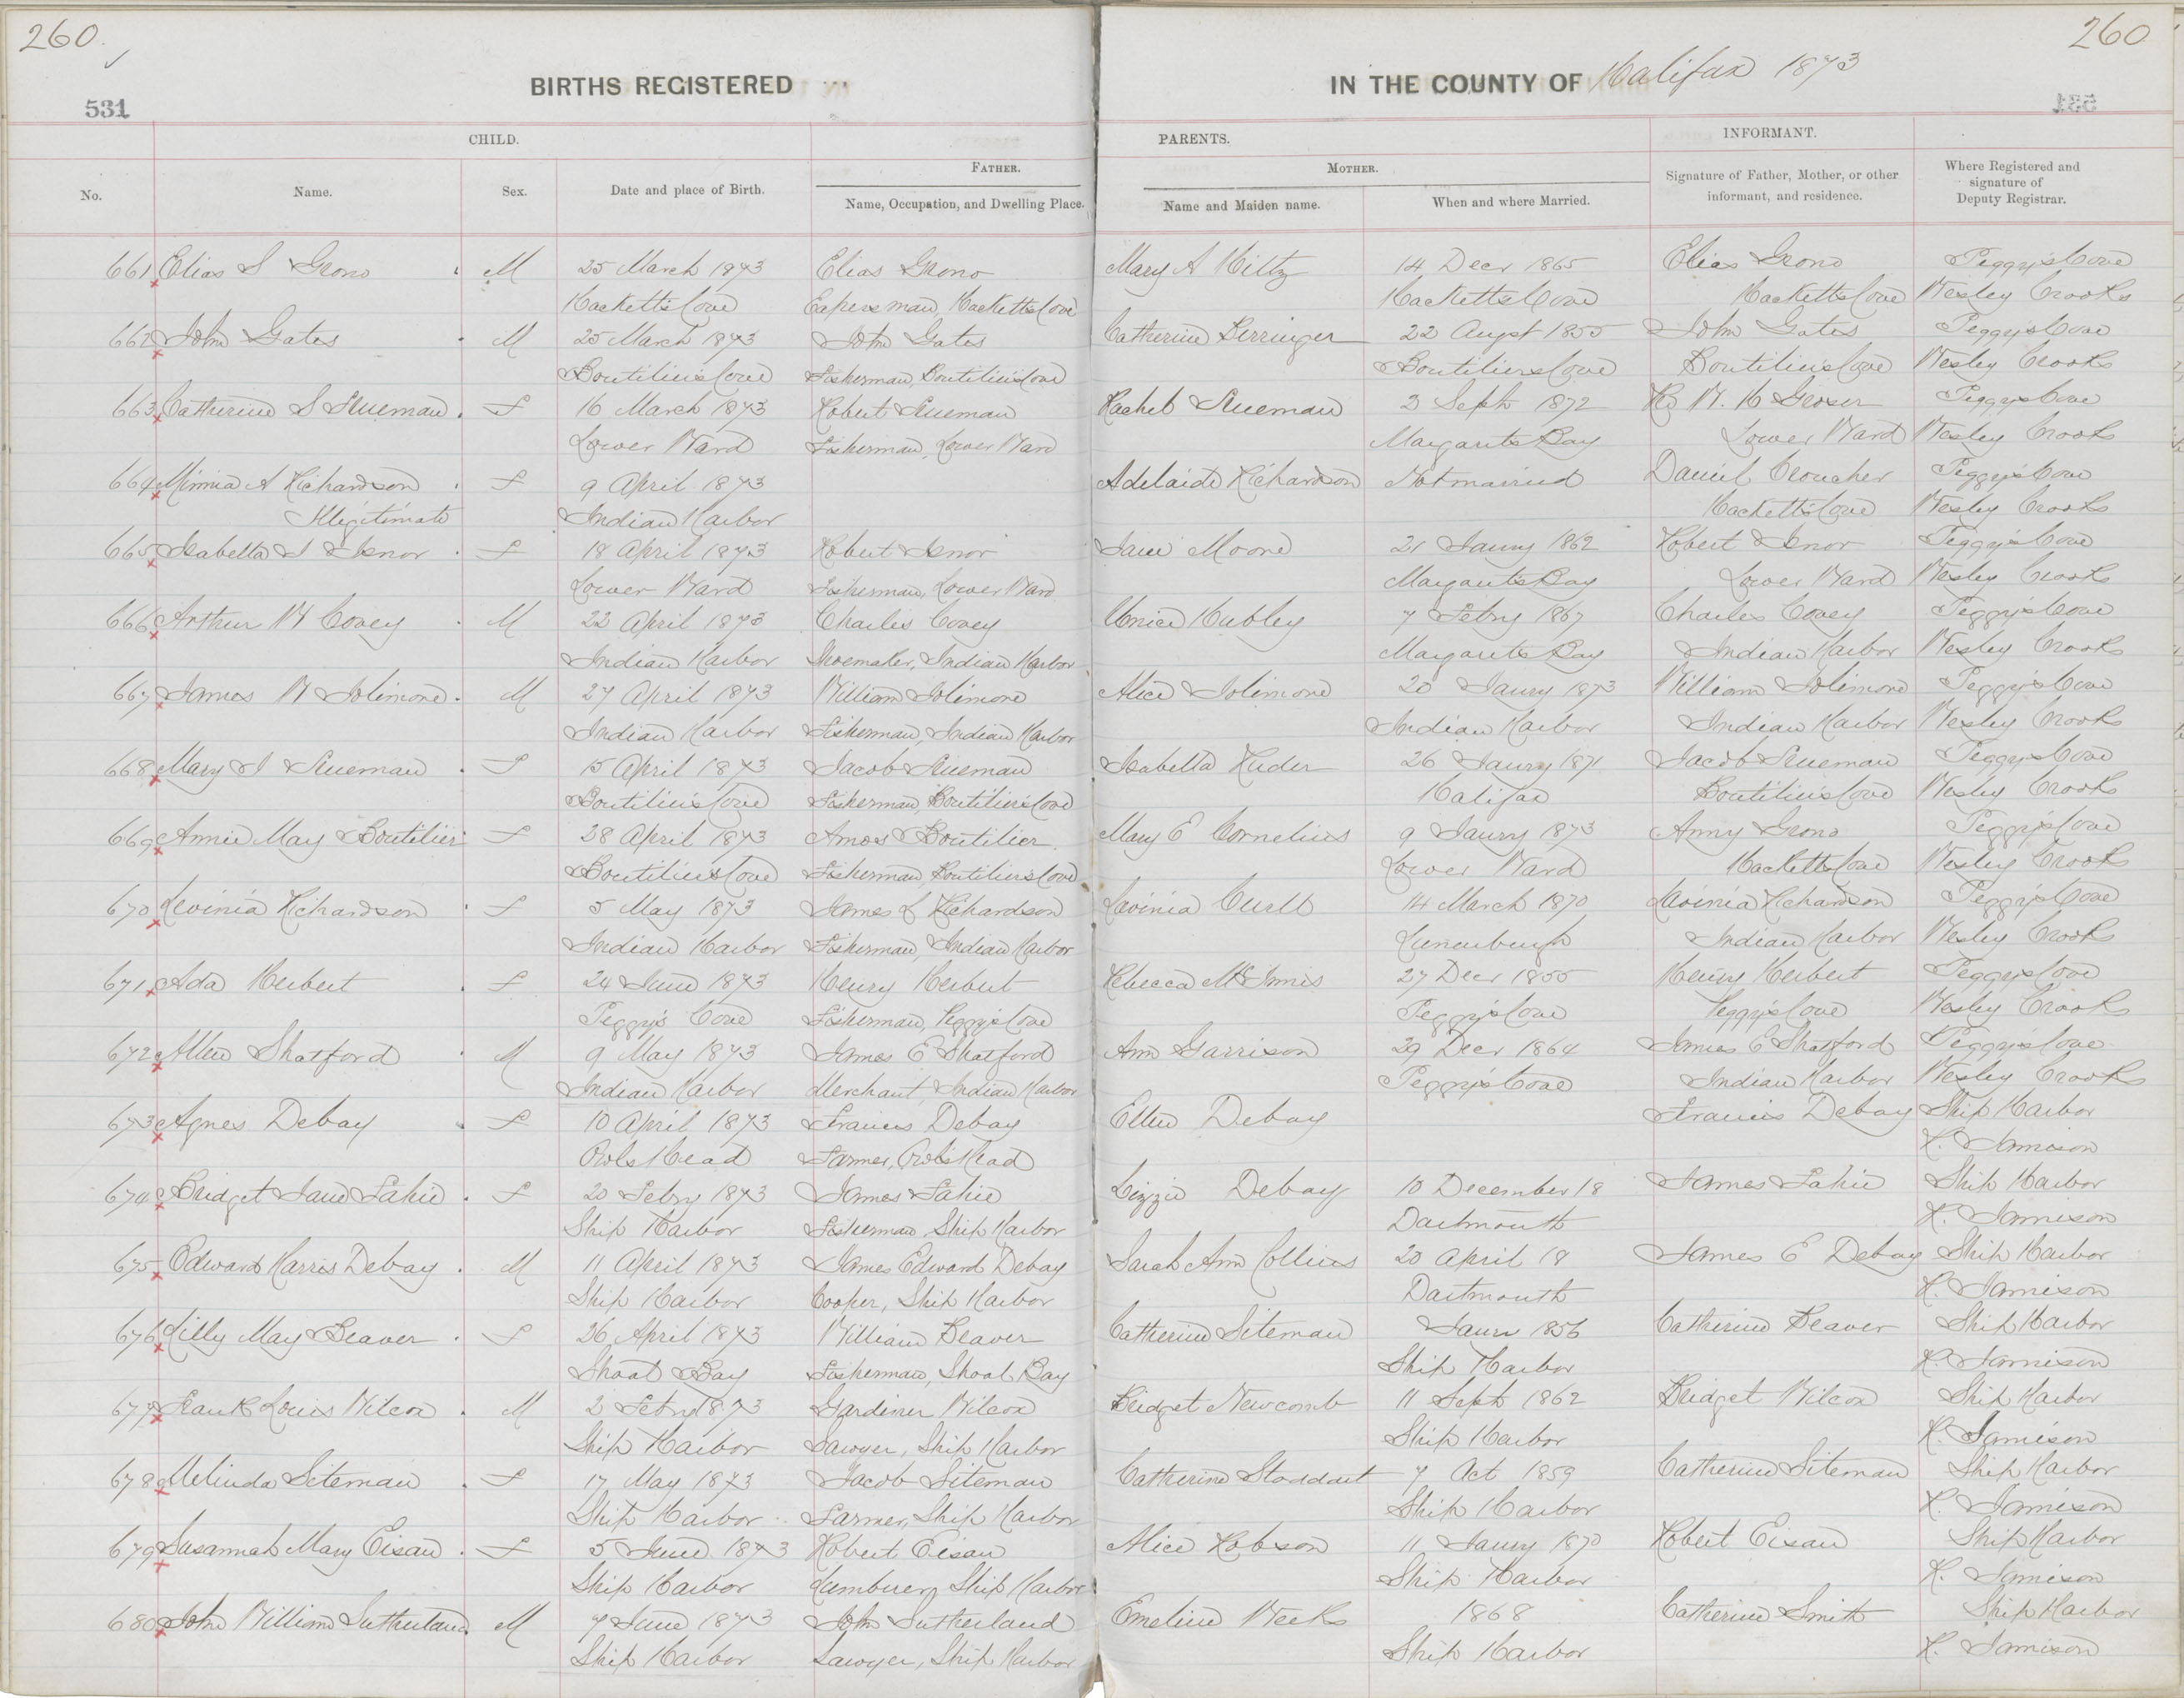 260.
260
BIRTHS REGISTERED
IN THE COUNTY OF Halifax 1873
531
CHILD.
PARENTS.
INFORMANT.
No.
Name.
Sex.
Date and place of Birth.
FATHER.
Name, Occupation, and Dwelling Place.
MOTHER.
Name and Maiden name.
When and where Married.
Signature of Father, Mother, or other informant, and residence.
Where Registered and signature of Deputy Registrar.
661 Elias S Grono M 25 March 1873 Elias Grono Mary A Hiltz 14 Decr 1865 Elias Grono Peggy's Cove
Hacketts Cove Hacketts Cove Hacketts Cove Hacketts Cove Wesley Crooks
662 John Gates M 25 March 1873 John Gates Catherine Berringer 22 Augst 1855 John Gates Peggy's Cove
Boutiliers Cove Fisherman, Boutiliers Cove Boutiliers Cove Boutiliers Cove Wesley Crooks
663 Catherine S F 16 March 1873 Robert Rachel Sept 1872 Peggy's Cove
Lower Ward Fisherman, Lower Ward Margarets Bay Lower Ward Wesley Crooks
664 Minnia A Richardson F 9 April 1873 Adelaide Richardson Not married Daniel Croucher Peggy's Cove
Illegitimate Indian Harbor Hacketts Cove Wesley Crooks
665 Isabella J Isnor F 18 April 1873 Robert Isnor Jane Moore 21 Jany 1862 Robert Isnor Peggy's Cove
Lower Ward Fisherman, Lower Ward Margarets Bay Lower Ward Wesley Crooks
666 Arthur W Covey M 22 April 1873 Charles Covey Unice Hubley 7 Febry 1867 Charles Covey Peggy's Cove
Indian Harbor Shoemaker, Indian Harbor Margarets Bay Indian Harbor Wesley Crooks
667 James W Jolimore M 27 April 1873 William Jolimore Alice Jolimore 20 Jaury 1873 William Jolimore Peggy's Cove
Indian Harbor Fisherman, Indian Harbor Indian Harbor Indian Harbor Wesley Crooks
668 Mary J F 15 April 1873 Jacob Isabella 26 Jaury 1871 Jacob Peggy's Cove
Boutiliers Cove Fisherman, Boutiliers Cove Halifax Boutiliers Cove Wesley Crooks
669 Annie May Boutilier F 28 April 1873 Amos Boutilier Mary E Cornelius 9 Jaury 1873 Anny Grono Peggy's Cove
Boutiliers Cove Fisherman, Boutiliers Cove Lower Ward Hacketts Cove Wesley Crooks
670 Levinia Richardson F 5 May 1873 James L Richardson Lavinia 14 March 1870 Lavinia Richardson Peggy's Cove
Indian Harbor Fisherman, Indian Harbor Lunenburgh Indian Harbor Wesley Crooks
671 Ada Herbert F 24 June 1873 Henry Herbert Rebecca McInnis 27 Decr 1855 Henry Herbert Peggy's Cove
Peggy's Cove Fisherman, Peggy's Cove Peggy's Cove Peggy's Cove Wesley Crooks
672 Allen Shatford M 9 May 1873 James E Shatford Ann Garrison 29 Decr 1864 James E Shatford Peggy's Cove
Indian Harbor Merchant, Indian Harbor Peggy's Cove Indian Harbor Wesley Crooks
673 Agnes Debay F 10 April 1873 Francis Debay Ellen Debay Francis Debay Ship Harbor
Owls Head Farmer, Owls Head R. Jamison
674 Bridget Jane Fahie F 20 Febry 1873 James Fahie Lizzie Debay 10 December 18 James Fahie Ship Harbor
Ship Harbor Fisherman, Ship Harbor Dartmouth R. Jamieson
675 Edward Harris Debay M 11 April 1873 James Edward Debay Sarah Ann Collins 20 April 18 James E Debay Ship Harbor
Ship Harbor Cooper, Ship Harbor Dartmouth R. Jamieson
676 Lilly May Beaver F 26 April 1873 William Beaver Catherine Siteman Jaur 1856 Catherine Beaver Ship Harbor
Shoal Bay Fisherman, Shoal Bay Ship Harbor R. Jamieson
677 Frank Louis Wilcox M 2 Febry 1873 Gardiner Wilcox Bridget Newcomb 11 Sept 1862 Bridget Wilcox Ship Harbor
Ship Harbor Sawyer, Ship Harbor Ship Harbor R. Jamieson
678 Melinda Siteman F 17 May 1873 Jacob Siteman Catherine Stoddart 7 Oct 1859 Catherine Siteman Ship Harbor
Ship Harbor Farmer, Ship Harbor Ship Harbor R. Jamieson
679 Susannah Mary Eisan F 5 June 1873 Robert Eisan Alice Robson 11 Jaury 1870 Robert Eisan Ship Harbor
Ship Harbor Lumberer, Ship Harbor Ship Harbor R. Jamieson
680 John William Sutherland M 7 June 1873 John Sutherland Emeline Weeks 1868 Catherine Smith Ship Harbor
Ship Harbor Sawyer, Ship Harbor Ship Harbor R. Jamieson